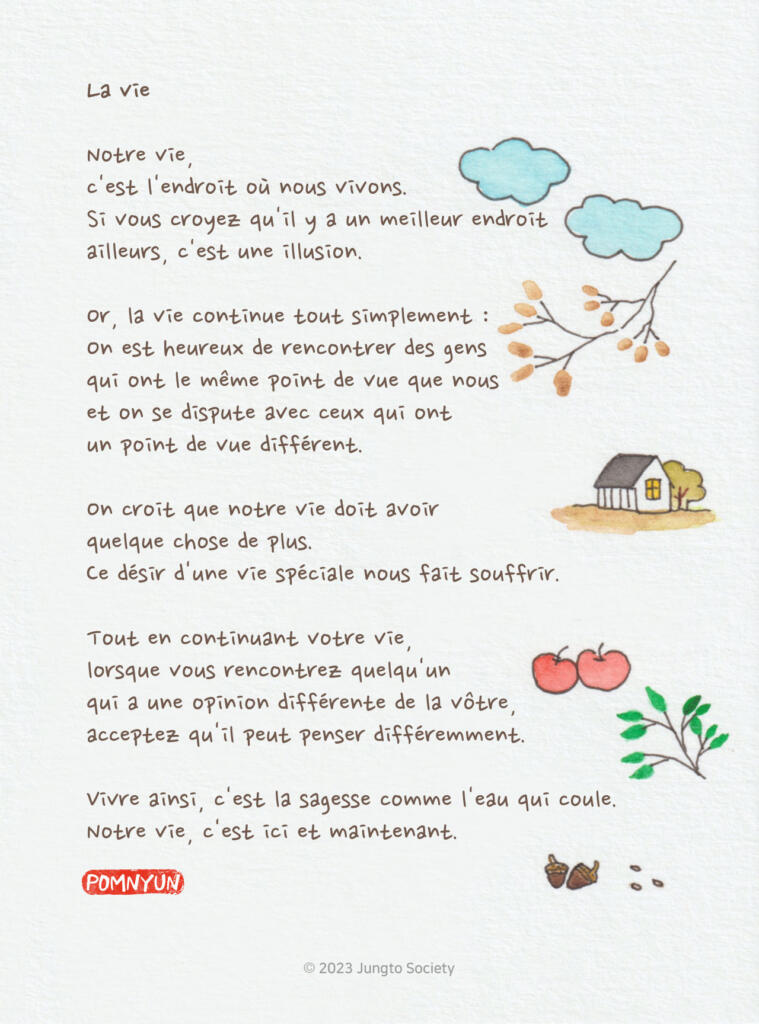 La vie
Notre vie,
c'est l'endroit où nous vivons.
Si vous croyez qu'il y a un meilleur endroit
ailleurs, c'est une illusion.
Or, la vie continue tout simplement :
On est heureux de rencontrer des gens
qui ont le même point de vue que nous
et on se dispute avec ceux qui ont
un point de vue différent.
On croit que notre vie doit avoir
quelque chose de plus.
Ce désir d'une vie spéciale nous fait souffrir.
Tout en continuant votre vie,
lorsque vous rencontrez quelqu'un
qui a une opinion différente de la vôtre,
acceptez qu'il peut penser différemment.
Vivre ainsi, c'est la sagesse comme l'eau qui coule.
Notre vie, c'est ici et maintenant.
POMNYUN
© 2023 Jungto Society